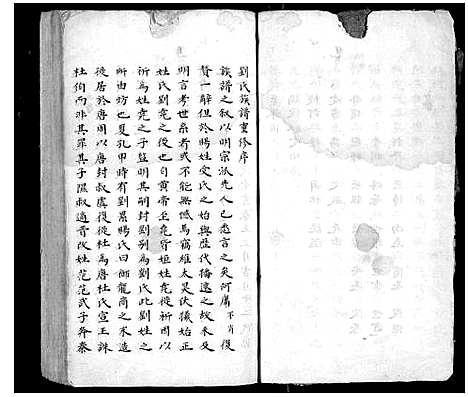 劉氏族譜重修序
族譜之敘以明宗派先人已悉言之矣何庸不肖復
贅一辭但於賜姓受氏之始與歷代播遷之故未及
明言考世系者或不能無憾焉竊維太昊伏羲始正
姓氏劉堯之後也自黃帝至帝嚳姬姓堯從祈因以
祈為姓堯之子監明其明封劉別為劉氏此劉姓之
所由坊也夏孔甲時有劉累賜氏曰御龍商之末造
徙居於唐周以唐封叔虞復徙杜為唐杜氏宣王誅
杜伯而非其罪其子隰叔適晋改姓范范武子奔秦